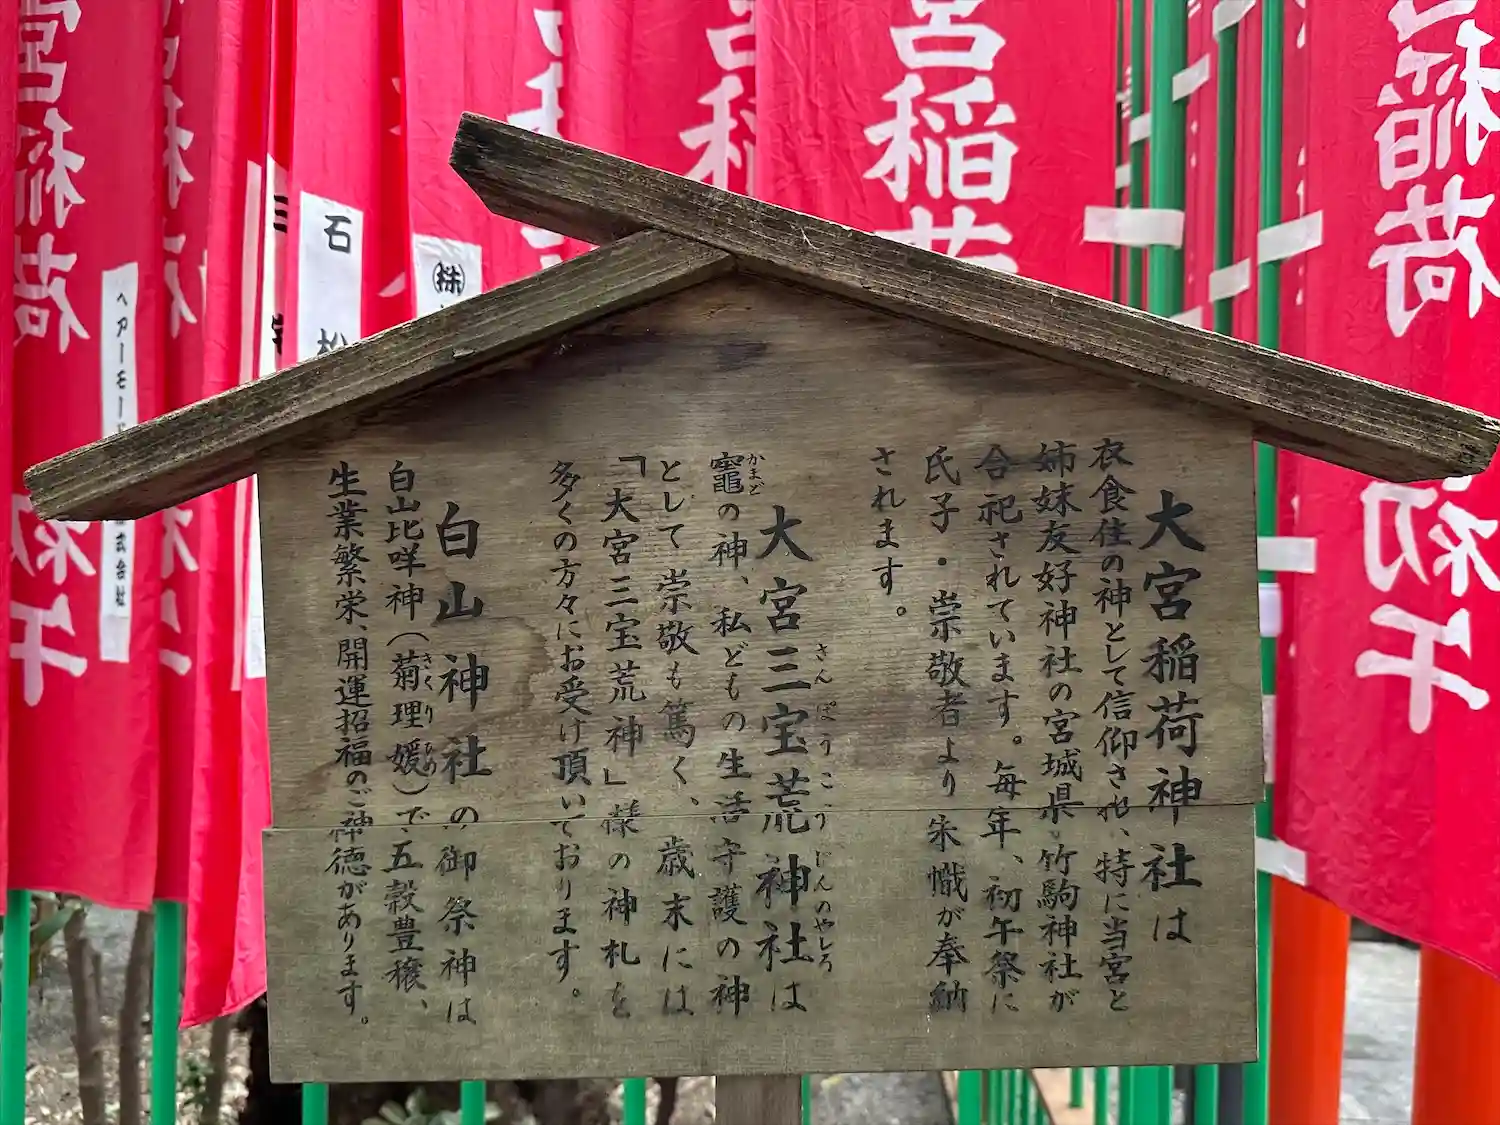 大宮稲荷神社は
衣食住の神として信仰され、特に当宮と
姉妹友好神社の宮城県・竹駒神社が
合祀されています。毎年、初午祭に
氏子・崇敬者より朱幟が奉納
されます。
大宮三宝荒神社は
さんぽうこうじんのやしろ
竈の神、私どもの生活守護の神
かまど
として崇敬も篤く、歳末には
「大宮三宝荒神」様の神札を
多くの方々にお受け頂いております。
白山神社の御祭神は
白山比咩神(菊理媛)で、五穀豊穣、
きくりひめ
生業繁栄、開運招福のご神徳があります。
宮稲荷
初午
宮稲荷
宮稲荷
初午
石松
㈱
式会社